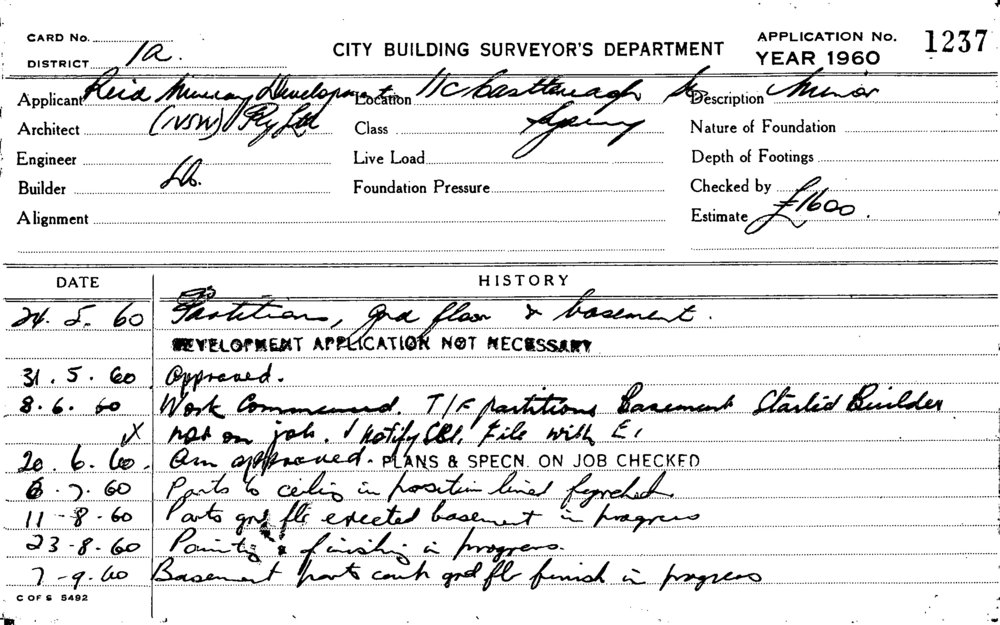 CARD No.
DISTRICT 1a.
CITY BUILDING SURVEYOR'S DEPARTMENT
APPLICATION No. 1237
YEAR 1960
Applicant Reid Murray Development
Location 11c Castlereagh St
Description Minor
Architect (NSW) Pty Ltd
Class
Nature of Foundation
Engineer
Live Load
Depth of Footings
Builder Do.
Foundation Pressure
Checked by
Alignment
Estimate £1600.
DATE HISTORY
24. 5. 60 Partitions, grd floor & basement.
DEVELOPMENT APPLICATION NOT NECESSARY
31. 5. 60 Approved.
8. 6. 60 Work Commenced. T/F partitions Basement Started Builder
X not on job. Notify File with
20. 6. 60. Am approved. PLANS & SPECN. ON JOB CHECKED
7. 60 Parts to ceiling in position lined
11-8-60 Parts grd flr erected basement in progress
23-8-60 Painting & finishing in progress.
7-9-60 Basement parts grd flr finish in progress
C OF S 5492